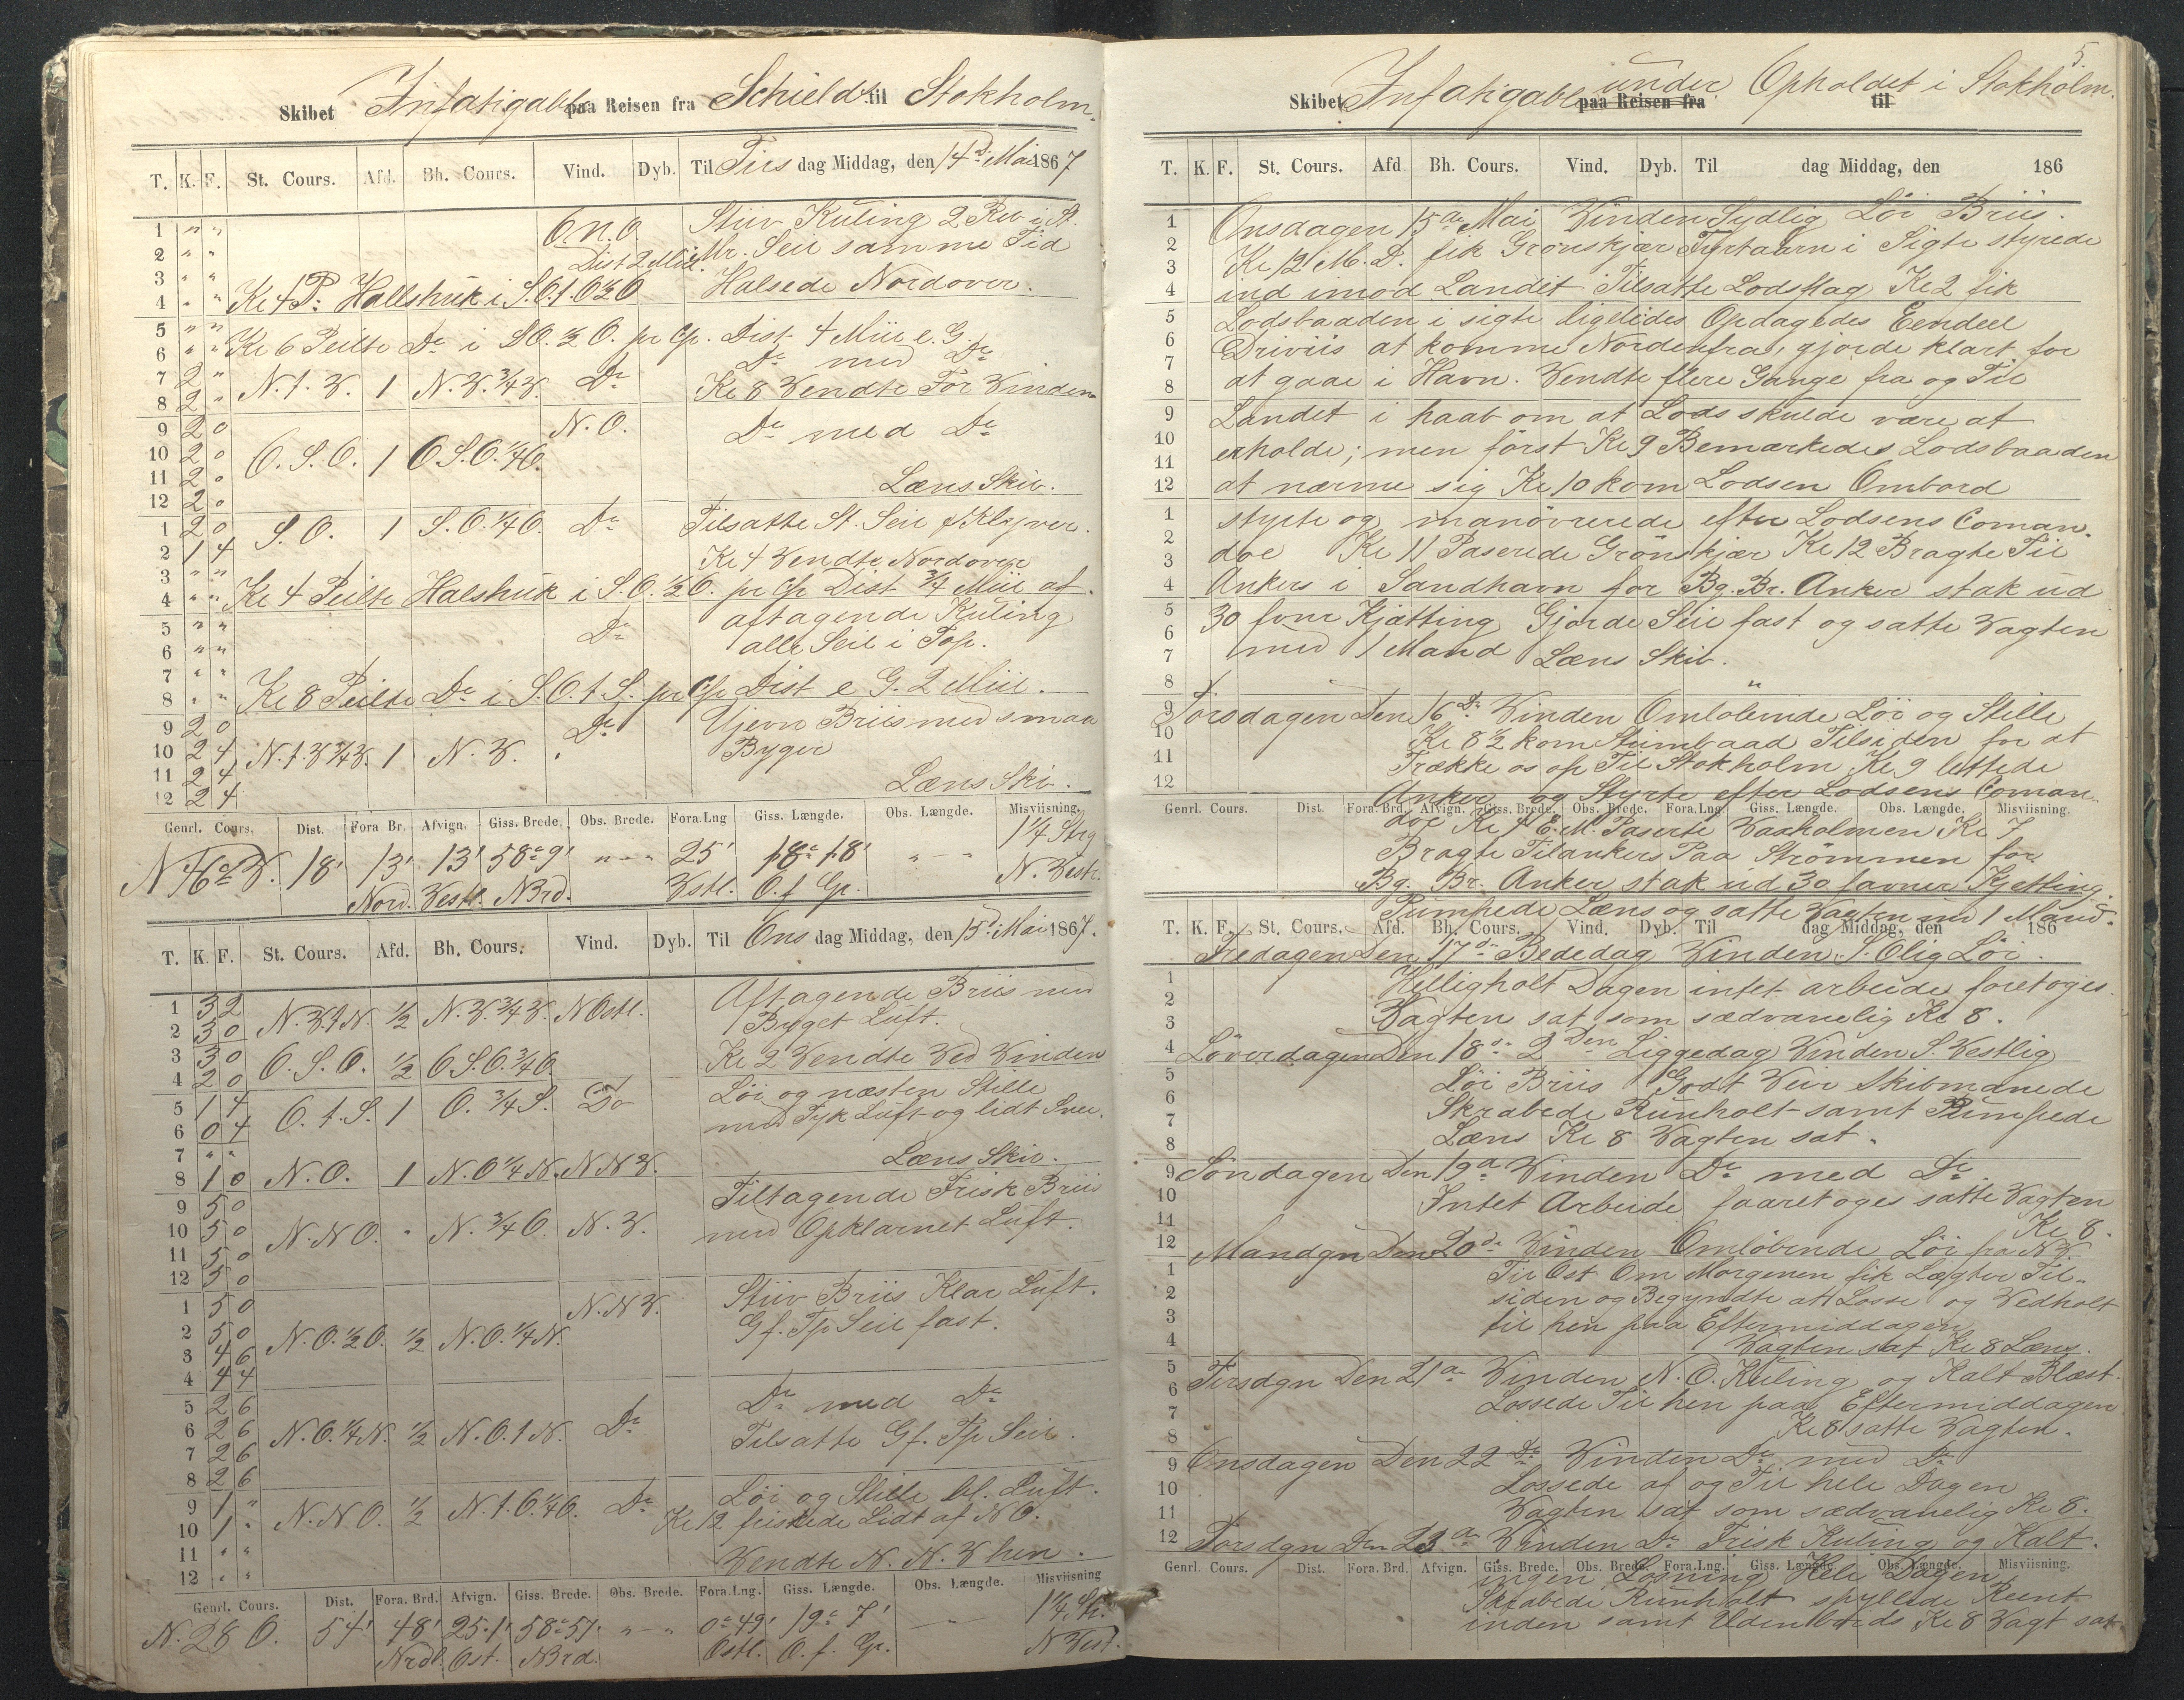 Skibet Infatigable paa Reisen fra Schields til Stokholm.
T. K. F. St. Cours. Afd. Bh. Cours. Vind. Dyb. Til Tirs dag Middag, den 14d. Mai 1867
1 " " O.N.O. Stiiv Kuling 2 Rev i St.
2 " " Dist 2 Miil. Mr. Seil samme Tid
3 " "
4 " " Kl 4 P. Hallshuk i S.O.t.O½O Halsede Nordover.
5 " " Kl 6 Peilte Do i SO.½O. pr Cp. Dist 4 Miil e. G.
6 " " Do med Do
7 2 " N.t.V. 1 N.V.¾V. Do Kl 8 Vendte For Vinden
8 2 "
9 2 0 N.O. Do med Do
10 2 0 O.S.O. 1 O.S.O.¼O.
11 2 0 Læns Skib.
12 2 0
1 2 0 S.O. 1 S.O.¼O. Do Tilsatte St. Seil & Klyver.
2 1 4 Kl 4 Vendte Nordover
3 " "
4 " " Kl 4 Peilte Halshuk i S.O.½O. pr Cp Dist ¾ Miil af.
5 " " Do aftagende Kuling
6 " " alle Seil i Top.
7 " "
8 " " Kl 8 Peilte Do i S.O.t.S. pr Cp Dist e G. 2 Miil.
9 2 0 Do Ujevn Briis med smaa
10 2 4 N.t.V¾V. 1 N.V. Byger
11 2 4 Læns Skib.
12 2 4
Genrl. Cours. Dist. Fora Br. Afvign. Giss. Brede. Obs. Brede. Fora.Lng Giss. Længde. Obs. Længde. Misviisning.
N46°V. 18' 13' 13' 58°9' " - " 25' 18° 18' " - 1¼ Strg
Nord. Vestl. NBrd. Vstl. O.f Gr. N. Vestl.
T. K. F. St. Cours. Afd. Bh. Cours. Vind. Dyb. Til Ons dag Middag, den 15d. Mai 1867.
1 3 2 Aftagende Briis med
2 3 0 N.V.t.N. ½ N.V.¾V. NOstl. Byget Luft.
3 3 0 O.S.O. ½ O.S.O.¾O Kl 2 Vendte Ved Vinden
4 2 0 Løi og næsten Stille
5 1 4 O.t.S. 1 O.¾S. Do med Tyk Luft og lidt Snee.
6 0 4
7 " " Læns Skib.
8 1 0 N.O. 1 N.O¼N. NNV.
9 5 0 Tiltagende Frisk Briis
10 5 0 N.NO. " N.¾O. N.V. med Opklarnet Luft.
11 5 0
12 5 0
1 5 0 N.NV. Stiiv Briis Klar Luft.
2 5 0 N.O.½O. ½ N.O.¼N. Gf. Tp Seil fast.
3 4 6
4 4 4
5 2 6 Do med Do
6 2 6 N.O.¼N. ½ N.O.t N. Do Tilsatte Gf. Tp Seil.
7 2 6
8 2 6
9 1 " Løi og Stille bl. Luft.
10 1 " N.NO. ½ N.t.O¼O. Do Kl 12 friskede Lidt af NO.
11 " "
12 " " Vendte N.N.V hen.
Genrl. Cours. Dist. Fora. Brd. Afvign. Giss. Brede. Obs. Brede. Fora.Lng. Giss. Længde. Obs. Længde. Misviisning
N.28 O. 54' 48' 25.1' 58°57. " - " 0°49' 19° 7' 1¼ Str.
Nrdl. Ost. NBrd. Ostl. O. f. Gr. N Vest.
5.
Skibet Infatigable paa Reisen fra under Opholdet i Stokholm. til
T. K. F. St. Cours. Afd Bh. Cours. Vind. Dyb. Til dag Middag, den 186
1 Onsdagen 15de Mai Vinden Sydlig Løi Briis.
2 Kl 12 M.D. fik Grønskjær Fyrtaarn i Sigte styrede
3
4 ind imod Landet Tilsatte Lodsflag Kl 2 fik
5 Lodsbaaden i sigte ligeledes Opdagedes Eendeel
6 Driviis at komme Nordenfra, gjorde klart for
7
8 at gaae i Havn. Vendte flere Gange fra og Til
9 Landet i haab om at Lods skulde være at
10 erholde; men först Kl 9 Bemærkedes Lodsbaaden
11
12 at nærme sig Kl 10 kom Lodsen Ombord
1 styrte og manövrerede efter Lodsens Coman-
2
3 doe Kl 11 Paserede Grönskjær Kl 12 Bragte Til
4 Ankers i Sandhavn for Bg. Br. Anker stak ud
5 30 fvnr Kjætting Gjorde Seil fast og satte Vagten
6
7 med 1 Mand Læns Skib.
8 "
9 Torsdagen Den 16de Vinden Omløbende Löi og Stille
10 Kl 8½ kom Stimbaad Tilsiden for at
11 Trække os op Til Stokholm Kl 9 lettede
12 Anker og Styrte efter Lodsens Coman-
Genrl. Cours. Dist. Fora. Brd. Afvign. Giss. Brede. Obs. Brede. Fora.Lng. Giss. Længde. Obs. Længde. Misviisning.
doe Kl 4 E.M. Paserte Vaxholmen Kl 7
Bragte Tilankers Paa Strømmen for
Bg. Br. Anker, stak ud 30 favner Kjetting.
Pumpede Læns og satte Vagten med 1 Mand.
T. K. F. St. Cours. Afd. Bh. Cours. Vind. Dyb. Til dag Middag, den 186
Fredagen Den 17de Bededag Vinden S.Olig Löi.
1 Helligholt Dagen intet arbeide foretoges.
2
3 Vagten sat som sædvanelig Kl 8.
4 Löverdagen Den 18de 2den Liggedag Vinden S. Vestlig
5 Löi Briis Godt Veir Skibmænede
6 Skrabede Runholt samt Pumpede
7
8 Læns Kl 8 Vagten sat.
9 Søndagen Den 19de Vinden Do med Do
10 Intet Arbeide faaretoges satte Vagten
11 Kl 8.
12 Mandgn Den 20de Vinden Omløbende Löi fra NV.
1 Til Ost Om Morgenen fik Lægter Til-
2 siden og Begyndte att Losse og Vedholt
3 til hen paa Eftermiddagen
4 Vagten sat Kl 8 Læns.
5 Tirsdgn Den 21de Vinden N.O. Kuling og Kalt Blæst.
6
7 Lossede Til hen paa Eftermiddagen
8 Kl 8 satte Vagten.
9 Onsdagen Den 22de Vinden Do med Do
10 Lossede af og Til hele Dagen
11 Vagten sat som sædvanelig Kl 8.
12 Torsdgn Den 23de Vinden Do Frisk Kuling og Kalt.
Genrl. Cours. Dist. Fora. Brd. Afvign. Giss. Brede. Obs. Brede. Fora.Lng. Giss. Længde Obs. Længde. Misviisning.
ingen Losning Hele Dagen
Skrabede Runholt spyllede Reent
inden samt Udenbords Kl 8 Vagt sat